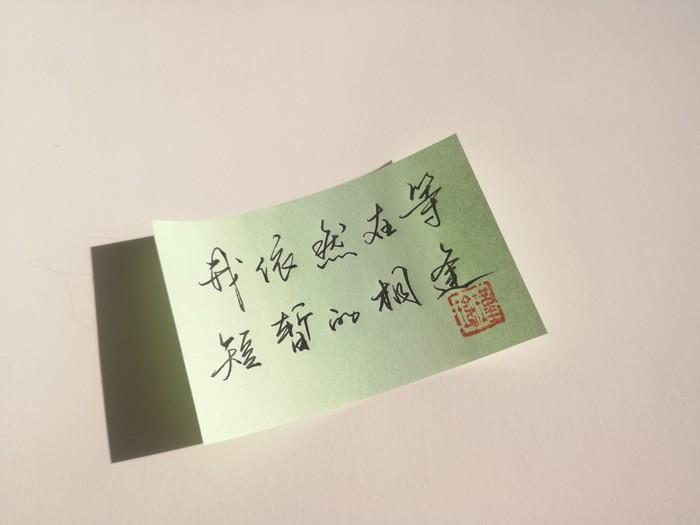 我依然在等
短暂的相逢